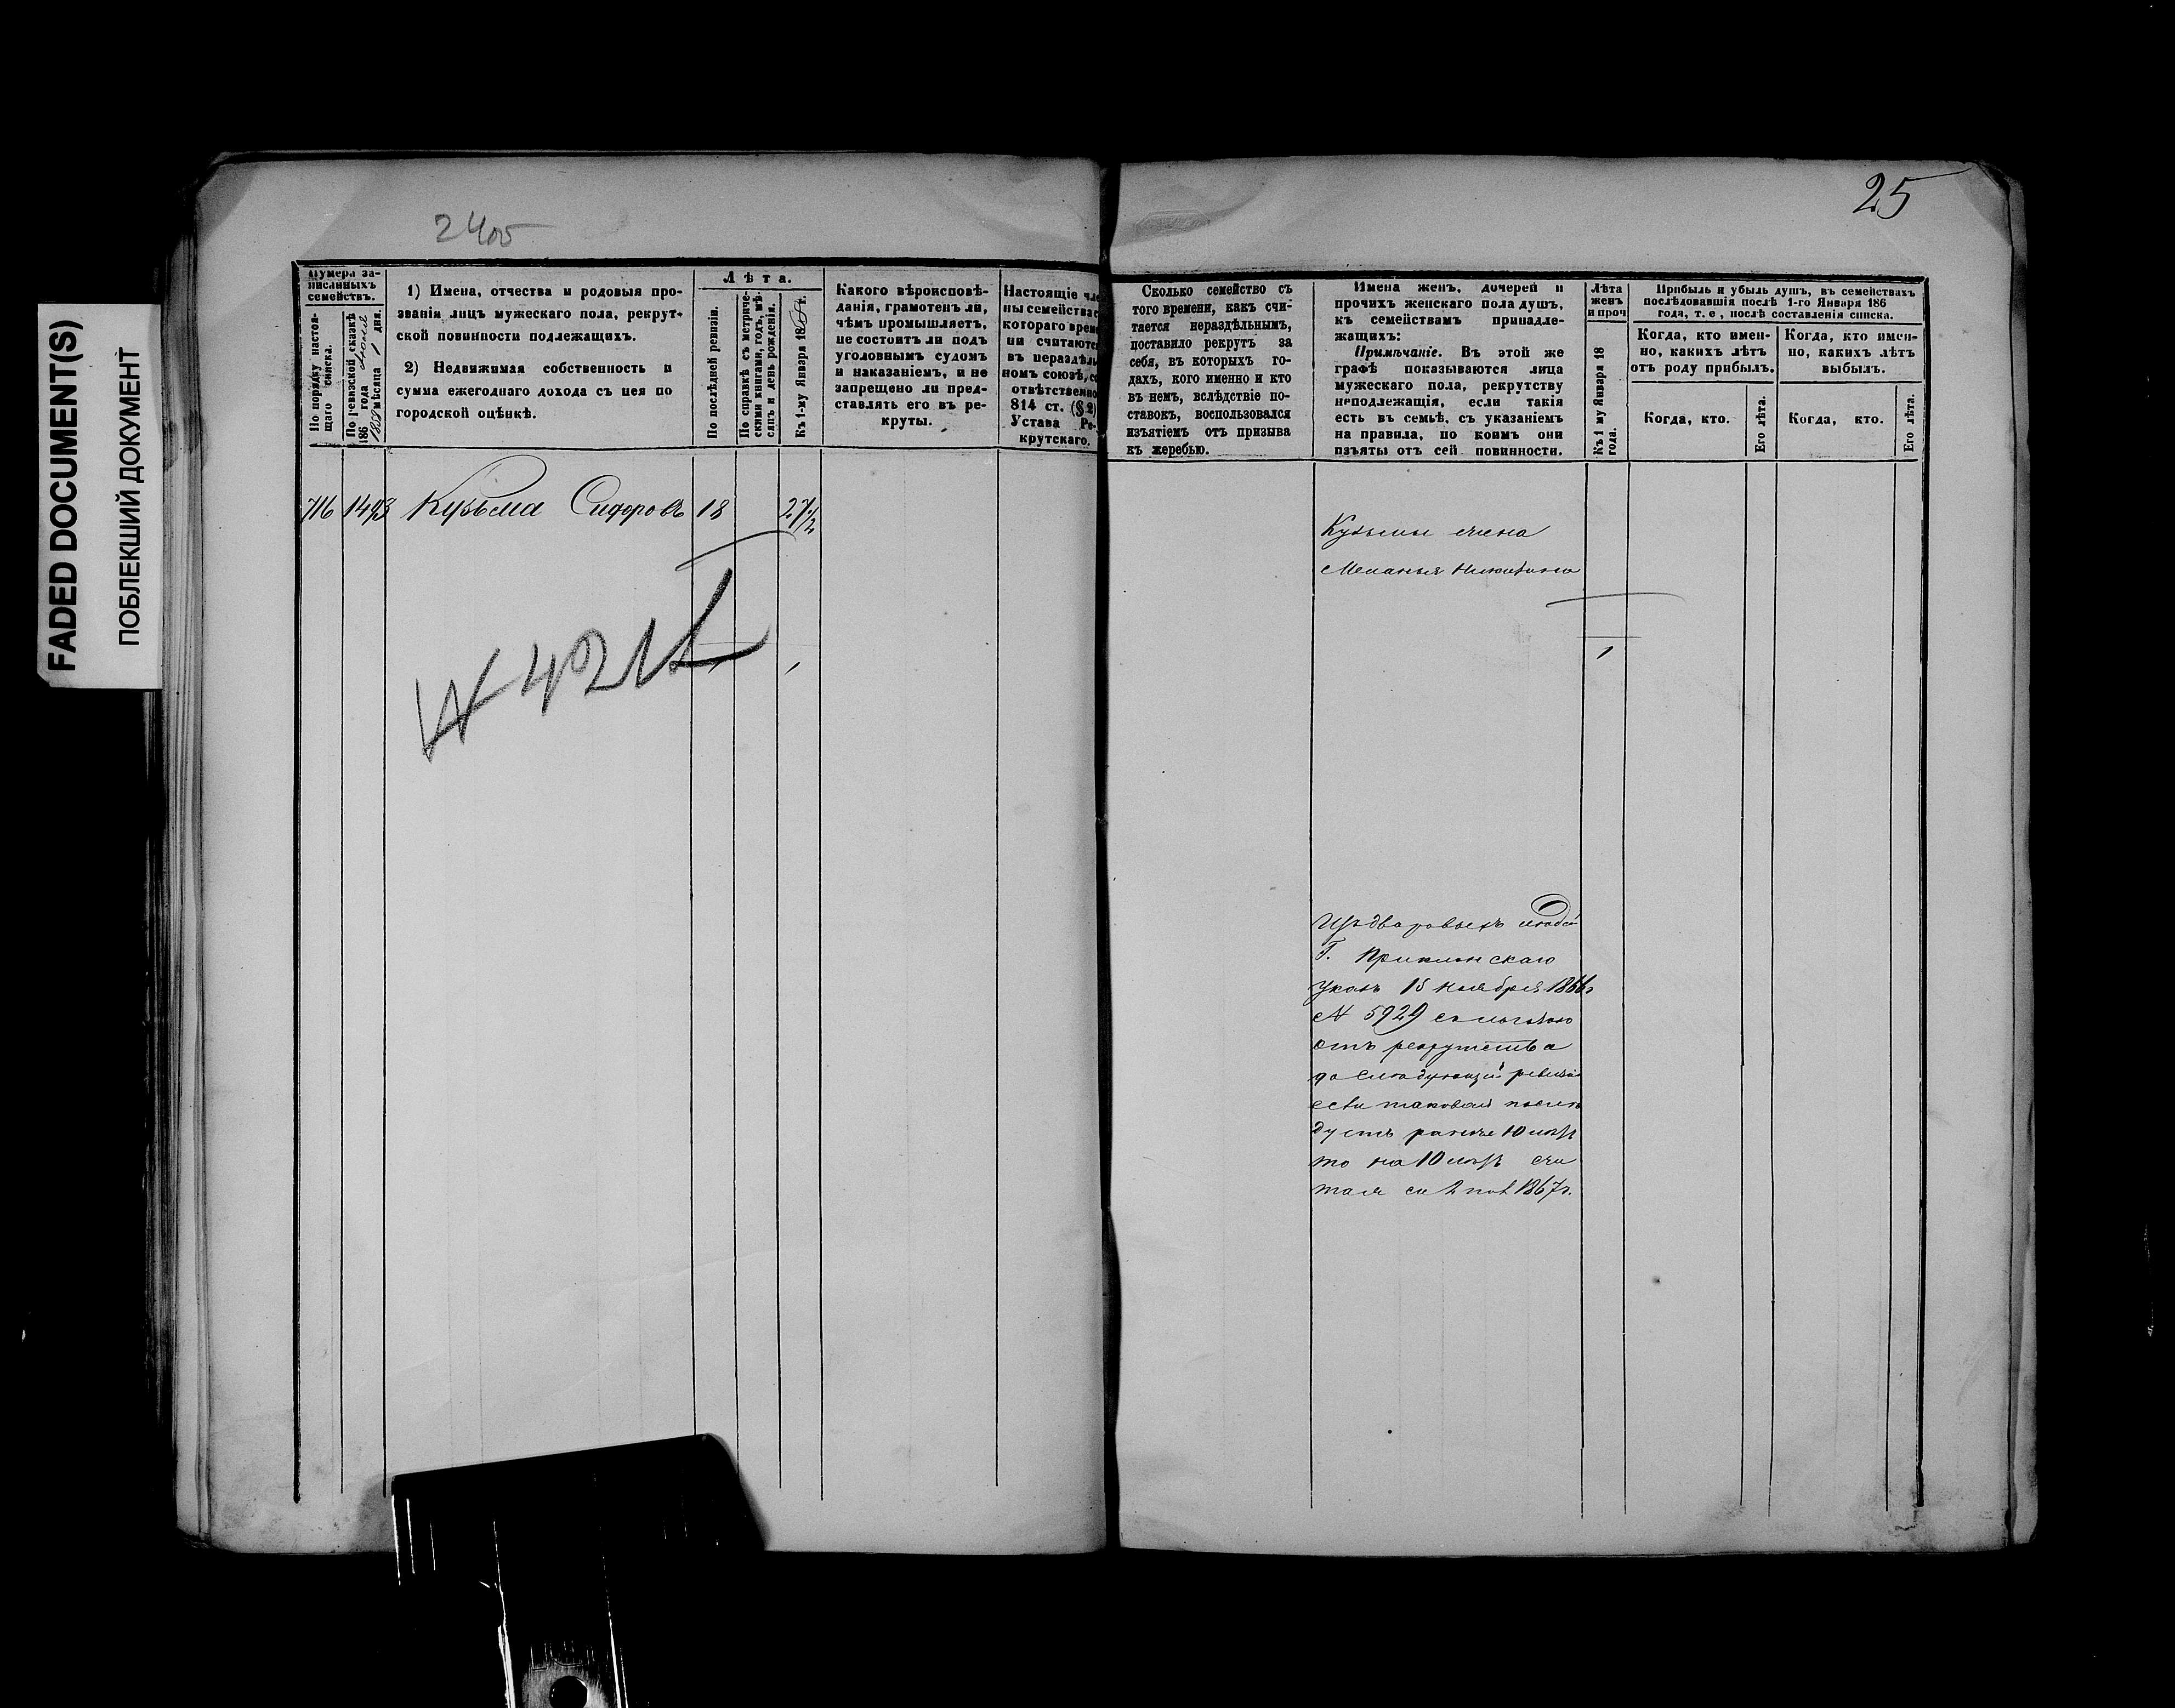 FADED DOCUMENT(S)
ПОБЛЕКШИЙ ДОКУМЕНТ
25
Нумера за-
писанныхъ
семействъ.
По порядку настоя-
щаго списка.
По ревизской сказкѣ
186 года
мѣсяца 1 дня.
1) Имена, отчества и родовыя про-
званія лицъ мужескаго пола, рекрут-
ской повинности подлежащихъ.
2) Недвижимая собственность и
сумма ежегоднаго дохода съ нея по
городской оцѣнкѣ.
Лѣта.
По послѣдней ревизіи.
По справкѣ съ метриче-
скими книгами, годъ, мѣ-
сяцъ и день рожденія.
Къ 1-му Января 18 г.
Какого вѣроисповѣ-
данія, грамотенъ ли,
чѣмъ промышляетъ,
не состоитъ ли подъ
уголовнымъ судомъ
и наказаніемъ, и не
запрещено ли пред-
ставлять его въ ре-
круты.
Настоящіе чле
ны семейства с
котораго време
ни считаются
въ нераздѣль
номъ союзѣ, со
отвѣтственно
814 ст. (§ 2)
Устава Ре-
крутскаго.
Сколько семейство съ
того времени, какъ счи-
тается нераздѣльнымъ,
поставило рекрутъ за
себя, въ которыхъ го-
дахъ, кого именно и кто
въ немъ, вслѣдствіе по-
ставокъ, воспользовался
изъятіемъ отъ призыва
къ жеребью.
Имена женъ, дочерей и
прочихъ женскаго пола душъ,
къ семействамъ принадле-
жащихъ:
Примѣчаніе. Въ этой же
графѣ показываются лица
мужескаго пола, рекрутству
неподлежащія, если такія
есть въ семьѣ, съ указаніемъ
на правила, по коимъ они
изъяты отъ сей повинности.
Лѣта
женъ
и проч
Къ 1 му Января 18
года.
Прибыль и убыль душъ, въ семействахъ
послѣдовавшія послѣ 1-го Января 186
года, т. е, послѣ составленія списка.
Когда, кто имен-
но, какихъ лѣтъ
отъ роду прибылъ.
Когда, кто.
Его лѣта.
Когда, кто имен-
но, какихъ лѣтъ
выбылъ.
Когда, кто.
Его лѣта.
716 1493 Кузьма Сидоровъ 18 27 1/2
Кузьмы жена
Меланья Никитина
1 1 1
Изъ дворовыхъ людей
Г. Приклонскаго
Указъ 15 Ноября 1866 г
№ 5929 съ льготою
отъ рекрутства
до слѣдующей ревизіи
если таковая послѣ
дуетъ ранѣе 10 лѣтъ
то на 10 лѣтъ счи
тая съ 2 пол 1867 г.